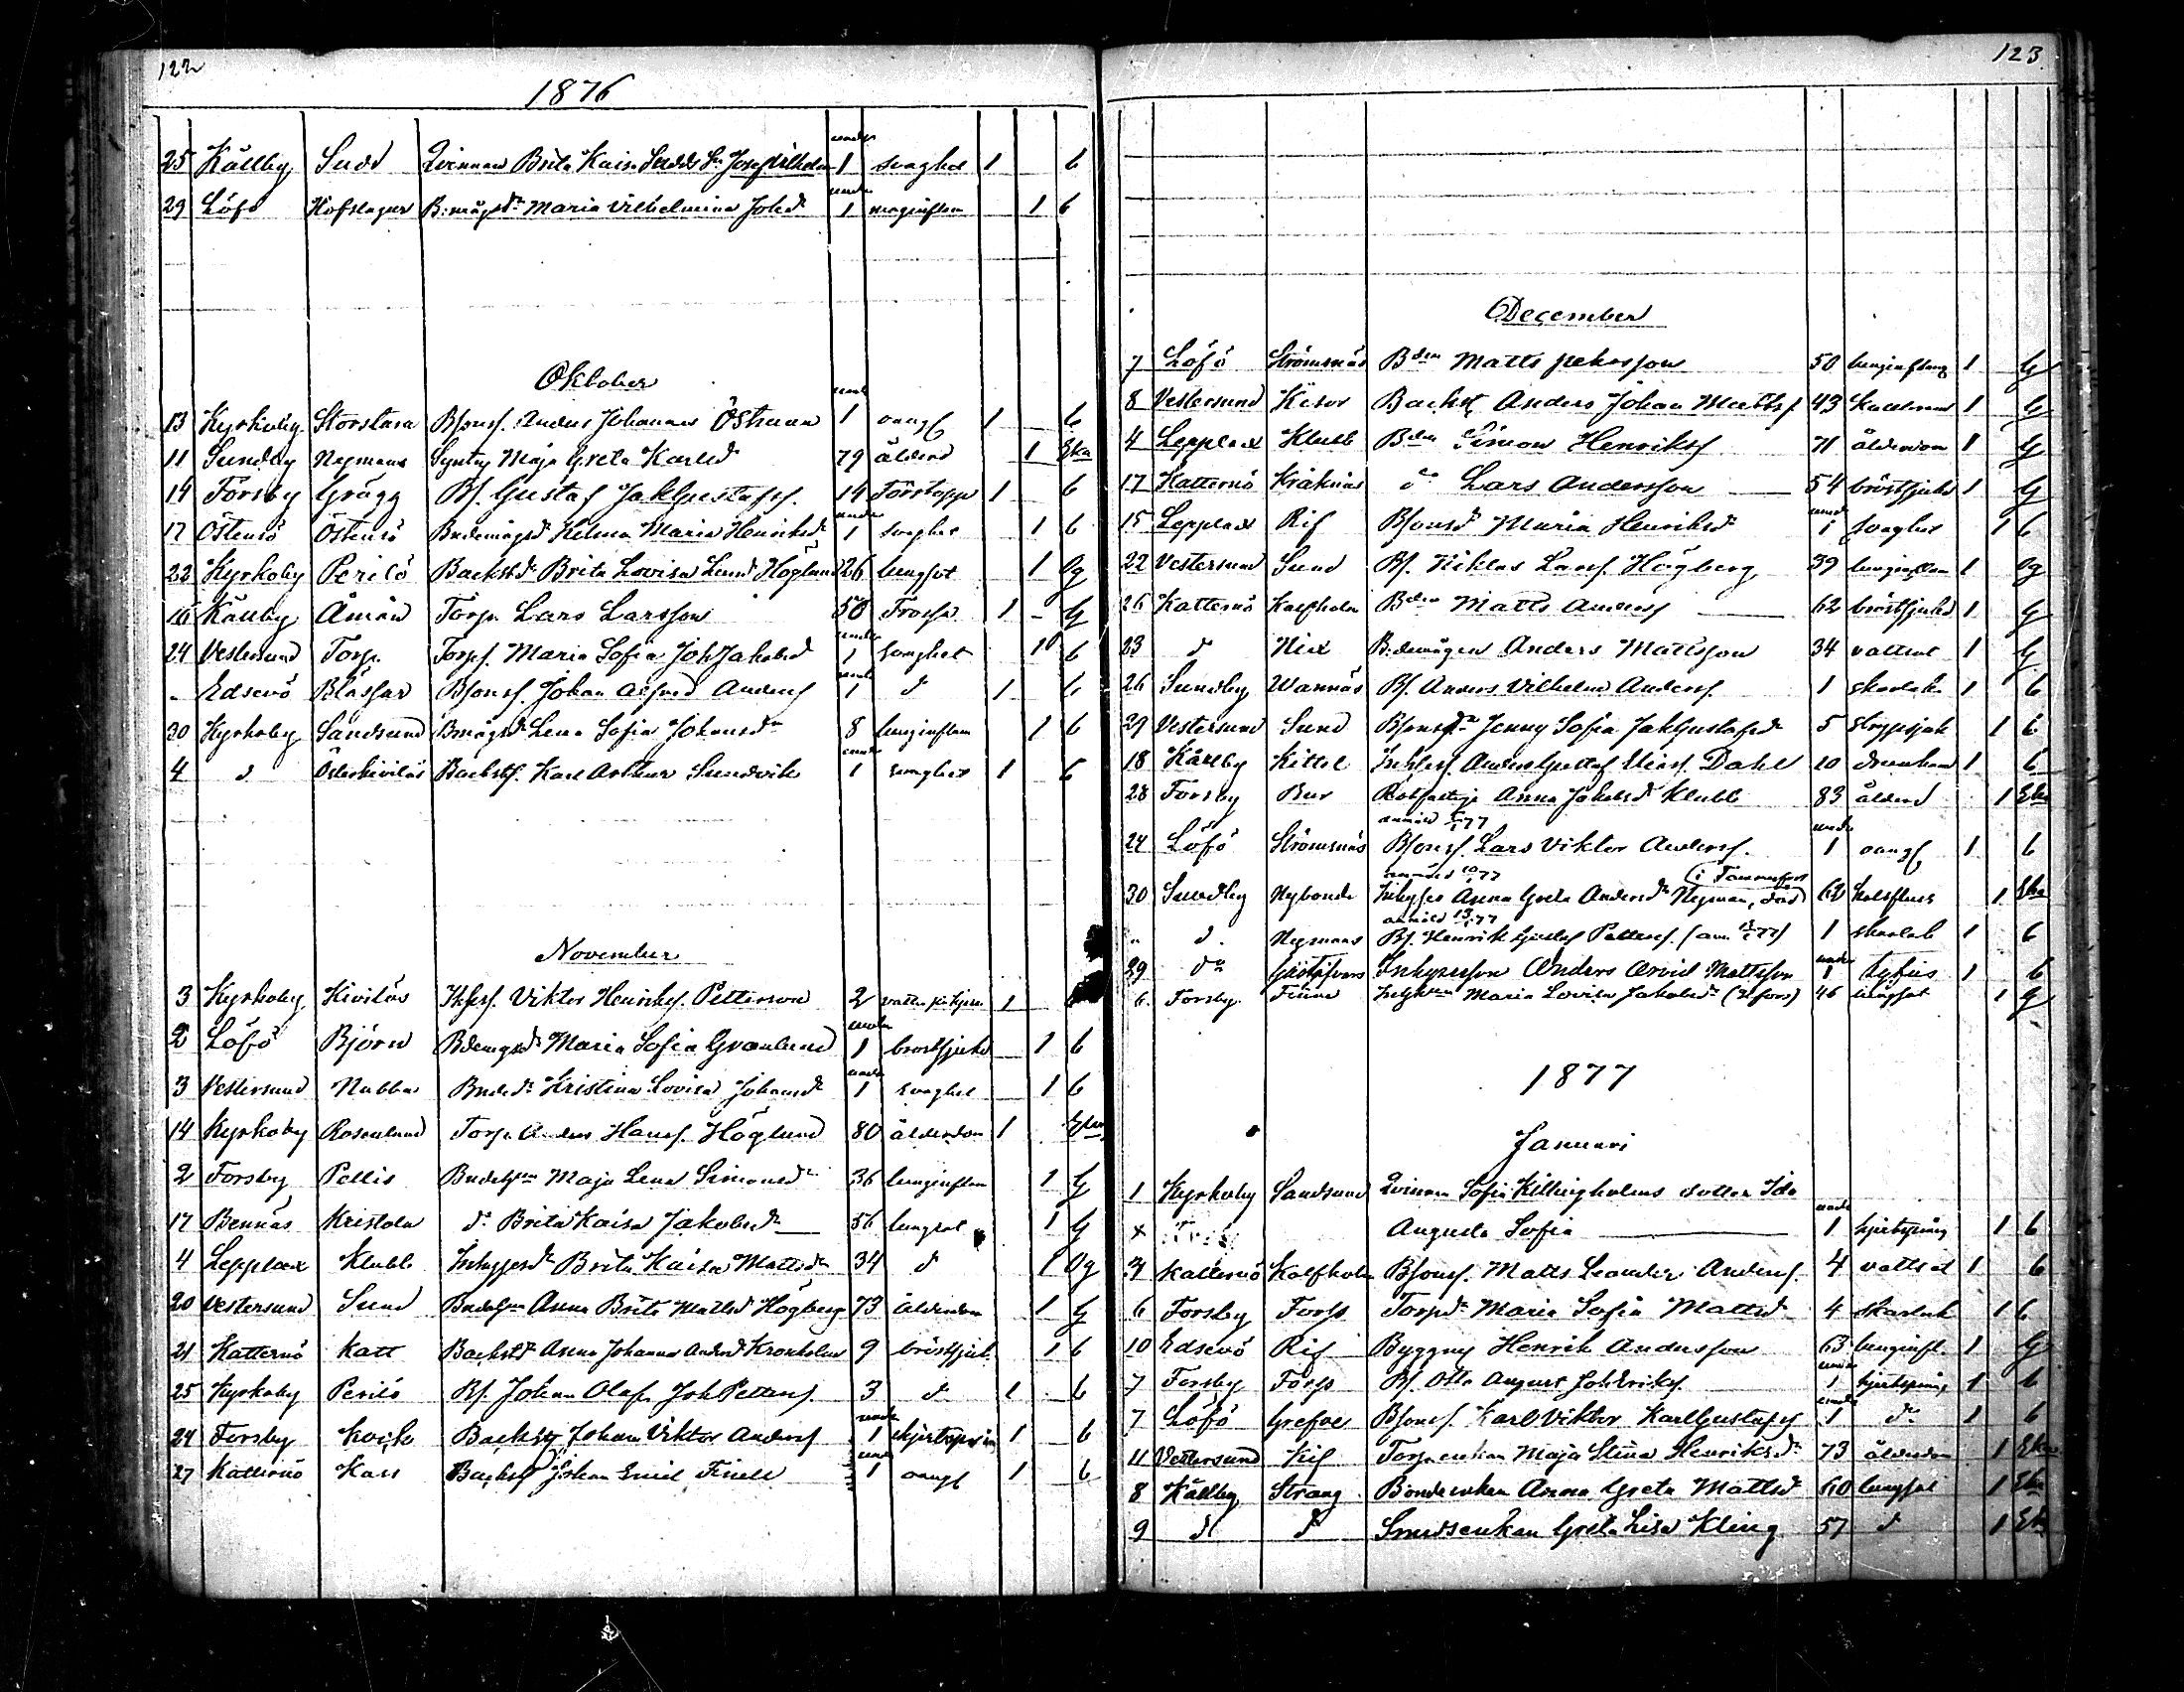 122
1876
25 Källby Sudd Qvinnan Brita Kaisa Sudds Sn Josef Vilhelm under 1 svaghet 1 b
29 Löfö Hofslagar B:mågsdr Maria Vilhelmina Johsdr under 1 maginflam 1 b
Oktober
13 Kyrkoby Storstara Bsonss. Anders Johannes Östman under 1 oangf 1 b
11 Sundby Nymans Syntng Maja Greta Karlsd 79 ålderd 1 Eka
14 Forsby Grägg Bs. Gustaf JakGustafss. 14 Förstopp 1 b
17 Östensö Östensö Bndemågsdr Hilma Maria Henriksdr under 1 svaghet 1 b
22 Kyrkoby Perilö Backstdr Brita Lovisa Lund Höglund 26 lungsot 1 Og
16 Källby Åmån Torp. Lars Larsson 50 Frossa 1 - G
24 Vestersund Torp. Torps. Maria Sofia JohJakobsd under 1 svaghet 1 b
- Edsevö Blåsjar Bsons. Johan Alfred Anders under 1 d 1 b
30 Kyrkoby Sandsund Bmågsdr Lena Sofia Johansdr 8 lunginflam 1 b
4 d Österkivilös Backsts. Karl Arthur Sundvik under 1 svaghet 1 b
November
3 Kyrkoby Kivilös Viktor Henrikss. Petterson 2 1
2 Löfö Björn Bdemgsdr Maria Sofia Granlund under 1 bröstsjukd 1 b
3 Vestersund Nabba Bndedr Kristina Lovisa Johansdr under 1 svaghet 1 b
14 Kyrkoby Rosenlund Torp. Anders Hanss. Höglund 80 ålderdom 1 Ekm
2 Forsby Pellis Maja Lena Simonsdr 36 lunginflam 1 G
17 Bennäs Kristola dr Brita Kaisa Jakobsdr 56 lungsot 1 G
4 Lepplax Klubb Inhysesdr Brita Kaisa Mattsdr 34 d 1 Og
20 Vestersund Sund Anna Brita Mattsd Högberg 73 ålderdom 1 G
21 Katternö Katt Backstdr Anna Johanna Andersd Kronholm 9 bröstsjuk 1 b
25 Kyrkoby Perilö Bs. Johan Olof JohPetters. 3 d 1 b
24 Forsby Backsts Johan Viktor Anders under 1 1 b
27 Katternö Kass Backsts Johan Emil Finell under 1 oangf 1 b
123
December
7 Löfö Strömsnäs Bden Matts Pehrsson 50 lunginflamg 1 G
8 Vestersund Kisor Backst Anders Johan Mattss 43 1 G
4 Lepplax Klubb Bden Simon Henrikss 71 ålderdom 1 G
17 Katternö Kråknäs do Lars Andersson 54 bröstsjukd 1 G
15 Lepplax Rif Bsonsdr Maria Henriksdr under 1 svaghet 1 b
22 Vestersund Sund Bs. Niklas Larss. Högberg 39 lunginflam 1 Og
26 Katternö Kalfholm Bden Matts Anderss 62 bröstsjukd 1 G
23 d Nix B:demågen Anders Mattsson 34 vattsot 1 G
26 Sundby Wannäs Bs. Anders Vilhelm Anderss. 1 skarlak. 1 b
29 Vestersund Sund Bsonsdr Jenny Sofia JakGustafsdr 5 strypsjuk 1 b
18 Källby Kittel Anders Gustaf Eliass. Dahl 20 1 b
28 Forsby Bur Rotfattige Anna Jakobsdr Klubb 83 ålderd 1 Eka
anmäld 77
24 Löfö Strömsnäs Bsons. Lars Viktor Anderss. under 1 oangf 1 b
anmäld 10/1 77 (i Tammerfors
30 Sundby Nybonde Inhyses Anna Greta Andersdr Nyman, död) 62 halsfluss 1 Eka
anmäld 13/1 77
" d. Nymans Bs. Henrik Gustaf Petterss. (anm. 77) 1 skarlak 1 b
29 do Gästgifvars Inhysesson Anders Arvid Mattsson under 1 tyfus 1 b
6. Forsby Finne Maria Lovisa Jakobsdr (H:fors) 46 lungsot 1 g
1877
Januari
1 Kyrkoby Sandsund Qvinnan Sofia Killingholms dotter Ida
x Augusta Sofia under 1 hjertspång 1 b
31 Katternö Kalfholm Bsons. Matts Leander Anderss. 4 vattsot 1 b
6 Forsby Forss Torpdr Maria Sofia Mattsdr 4 skarlak 1 b
10 Edsevö Rif Byggng Henrik Andersson 63 lunginfl. 1 G
7 Forsby Forss Bs. Otto August JohErikss. under 1 hjertspång 1 b
7 Löfö Grefves Bsons. Karl Viktor KarlGustafss under 1 do 1 b
11 Vestersund Kif Torpenkan Maja Stina Henriksdr 73 ålderdom 1 Eka
8 Källby Strang Bondeenkan Anna Greta Mattsdr 60 lungsot 1 Eka
9 d d Smedsenkan Greta Lisa Kling 57 d 1 Eka